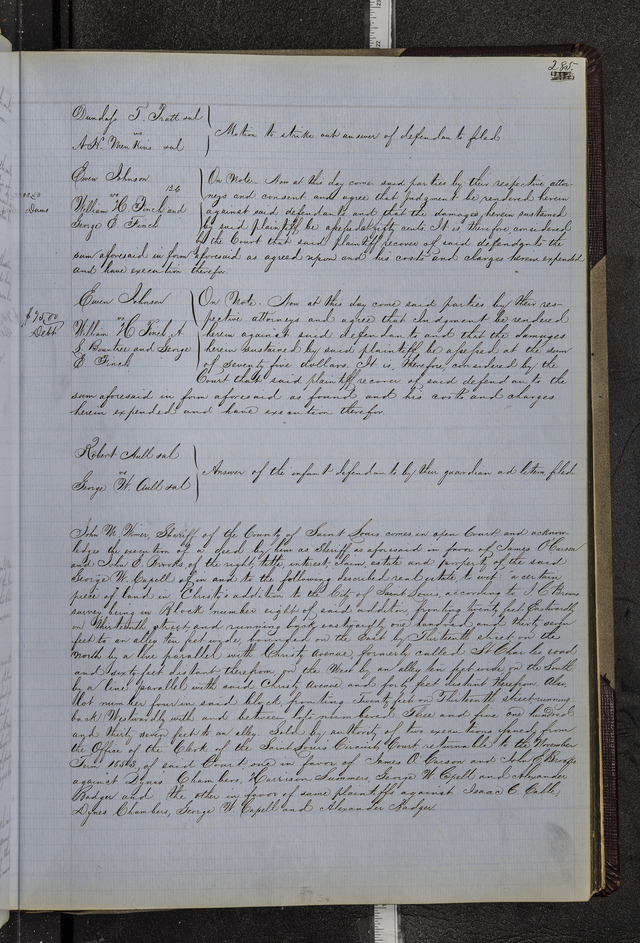 285.
Dundass T. Pratt et al
vs
A. W. Menkins et al
Motion to strike out answer of defendants filed
Ewen Johnson
vs 124
William H Finch and
George E. Finch
Dams
On Note. Now at this day come said parties by their respective attor-
neys and consent and agree that judgment be rendered herein
against said defendants and that the damages herein sustained
by said plaintiff be assessed at fifty cents. It is therefore considered
by the Court that said plaintiff recover of said defendants the
sum aforesaid in form aforesaid as agreed upon and his costs and charges herein expended
and have execution therefor.
Ewen Johnson
vs
William H Finch, A
S Rountree and George
E Finch
$75.00
Debt
On Note. Now at this day come said parties by their res-
pective attorneys and agree that Judgment be rendered
herein against said defendants and that the damages
herein sustained by said plaintiff be assessed at the sum
of seventy five dollars. It is, therefore, considered by the
Court that said plaintiff recover of said defendants the
sum aforesaid in form aforesaid as found and his costs and charges
herein expended and have execution therefor.
Robert Aull et al
vs
George W. Aull et al
Answer of the infant defendants by their guardian ad litem filed
John W. Wimer, Sheriff of the County of Saint Louis comes in open Court and acknow-
ledges the execution of a deed by him as Sheriff as aforesaid in favor of James O Carson
and John E Brooks of the right, title, interest, claim, estate and property of the said
George W. Capell of in and to the following described real estate, to wit: a certain
piece of land in Christy's addition to the City of Saint Louis, according to J C Browns
survey being in Block number eight of said addition, fronting twenty feet Eastwardly
on Thirteenth street and running back westwardly one hundred and thirty seven
feet to an alley ten feet wide, bounded on the East by Thirteenth street on the
North by a line parallel with Christy Avenue formerly called St Charles road
and sixty feet distant therefrom, on the West by an alley ten feet wide, on the South
by a line parallel with said Christy Avenue and forty feet distant therefrom. Also,
Lot number four in said block, fronting Twenty feet on Thirteenth street running
back Westwardly with and between lots numbered Three and five one hundred
and thirty seven feet to an alley. Sold by authority of two executions issued from
the Office of the Clerk of the Saint Louis Circuit Court returnable to the November
Term of said Court one in favor of James O. Carson and John E Brooks
against Dynes Chambers, Harrison Summers, George W Capell and Alexander
Badger and the other in favor of same plaintiffs against Isaac C. Cabb,
Dynes Chambers, George W Capell and Alexander Badger